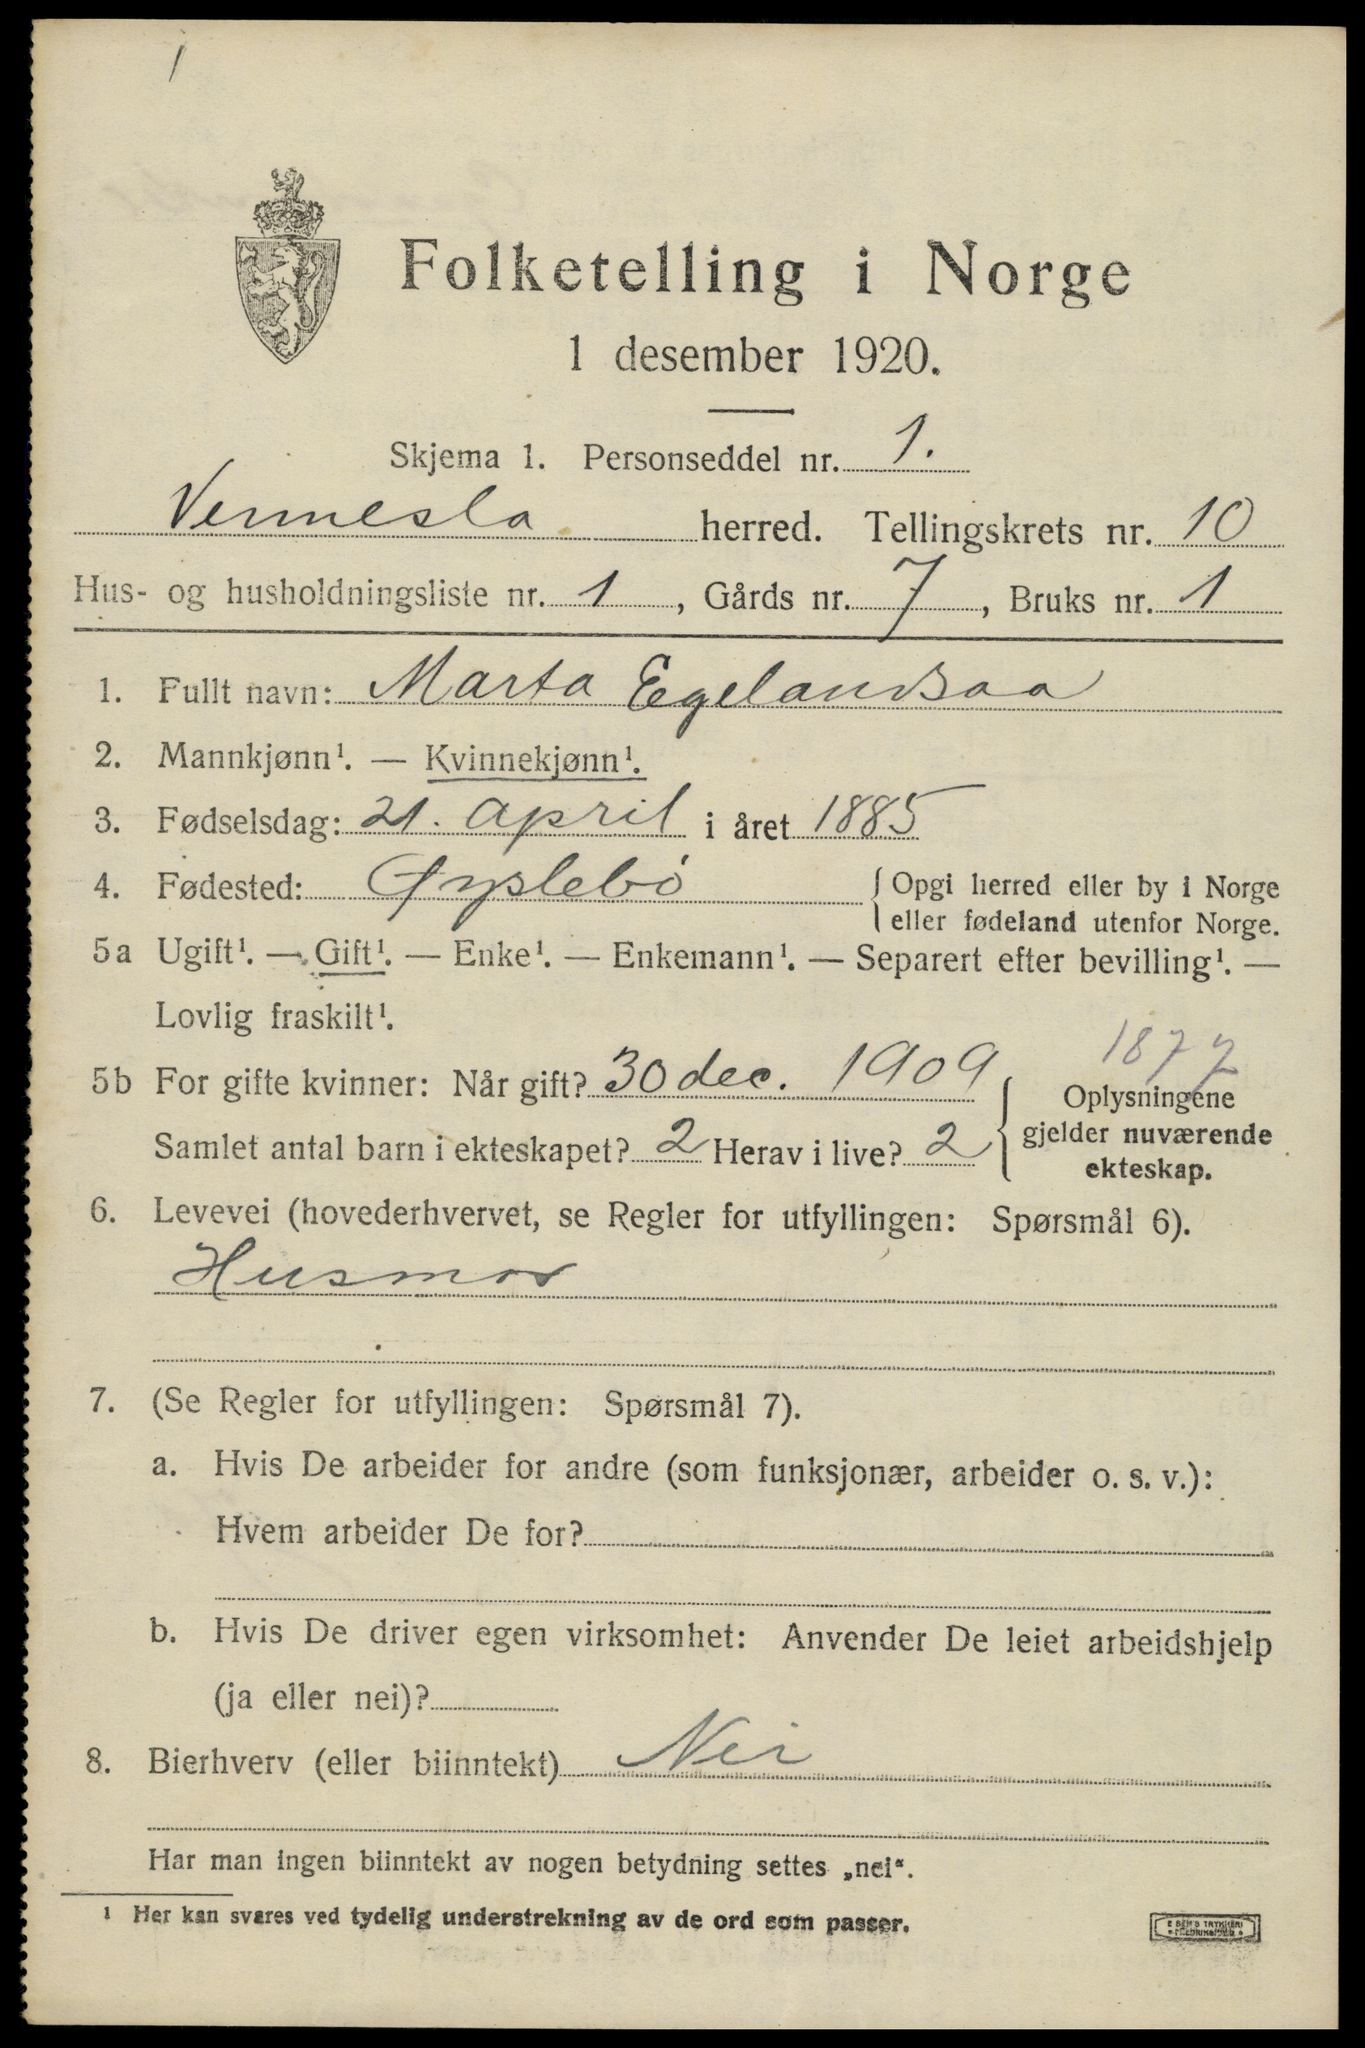 1
Folketelling i Norge
1 desember 1920.
Skjema 1. Personseddel nr. 1.
Vennesla herred. Tellingskrets nr. 10
Hus- og husholdningsliste nr. 1, Gårds nr. 7, Bruks nr. 1
1. Fullt navn: Marta Egelandsaa
2. Mannkjønn¹. — Kvinnekjønn¹.
3. Fødselsdag: 21. april i året 1885
4. Fødested: Øyslebö { Opgi herred eller by i Norge
eller fødeland utenfor Norge.
5a Ugift¹. — Gift¹. — Enke¹. — Enkemann¹. — Separert efter bevilling¹. —
Lovlig fraskilt¹.
1877
5b For gifte kvinner: Når gift? 30 dec. 1909 { Oplysningene
Samlet antal barn i ekteskapet? 2 Herav i live? 2 gjelder nuværende
ekteskap.
6. Levevei (hovederhvervet, se Regler for utfyllingen: Spørsmål 6).
Husmor
7. (Se Regler for utfyllingen: Spørsmål 7).
a. Hvis De arbeider for andre (som funksjonær, arbeider o. s. v.):
Hvem arbeider De for?
b. Hvis De driver egen virksomhet: Anvender De leiet arbeidshjelp
(ja eller nei)?
8. Bierhverv (eller biinntekt) Nei
Har man ingen biinntekt av nogen betydning settes „nei“.
¹ Her kan svares ved tydelig understrekning av de ord som passer.